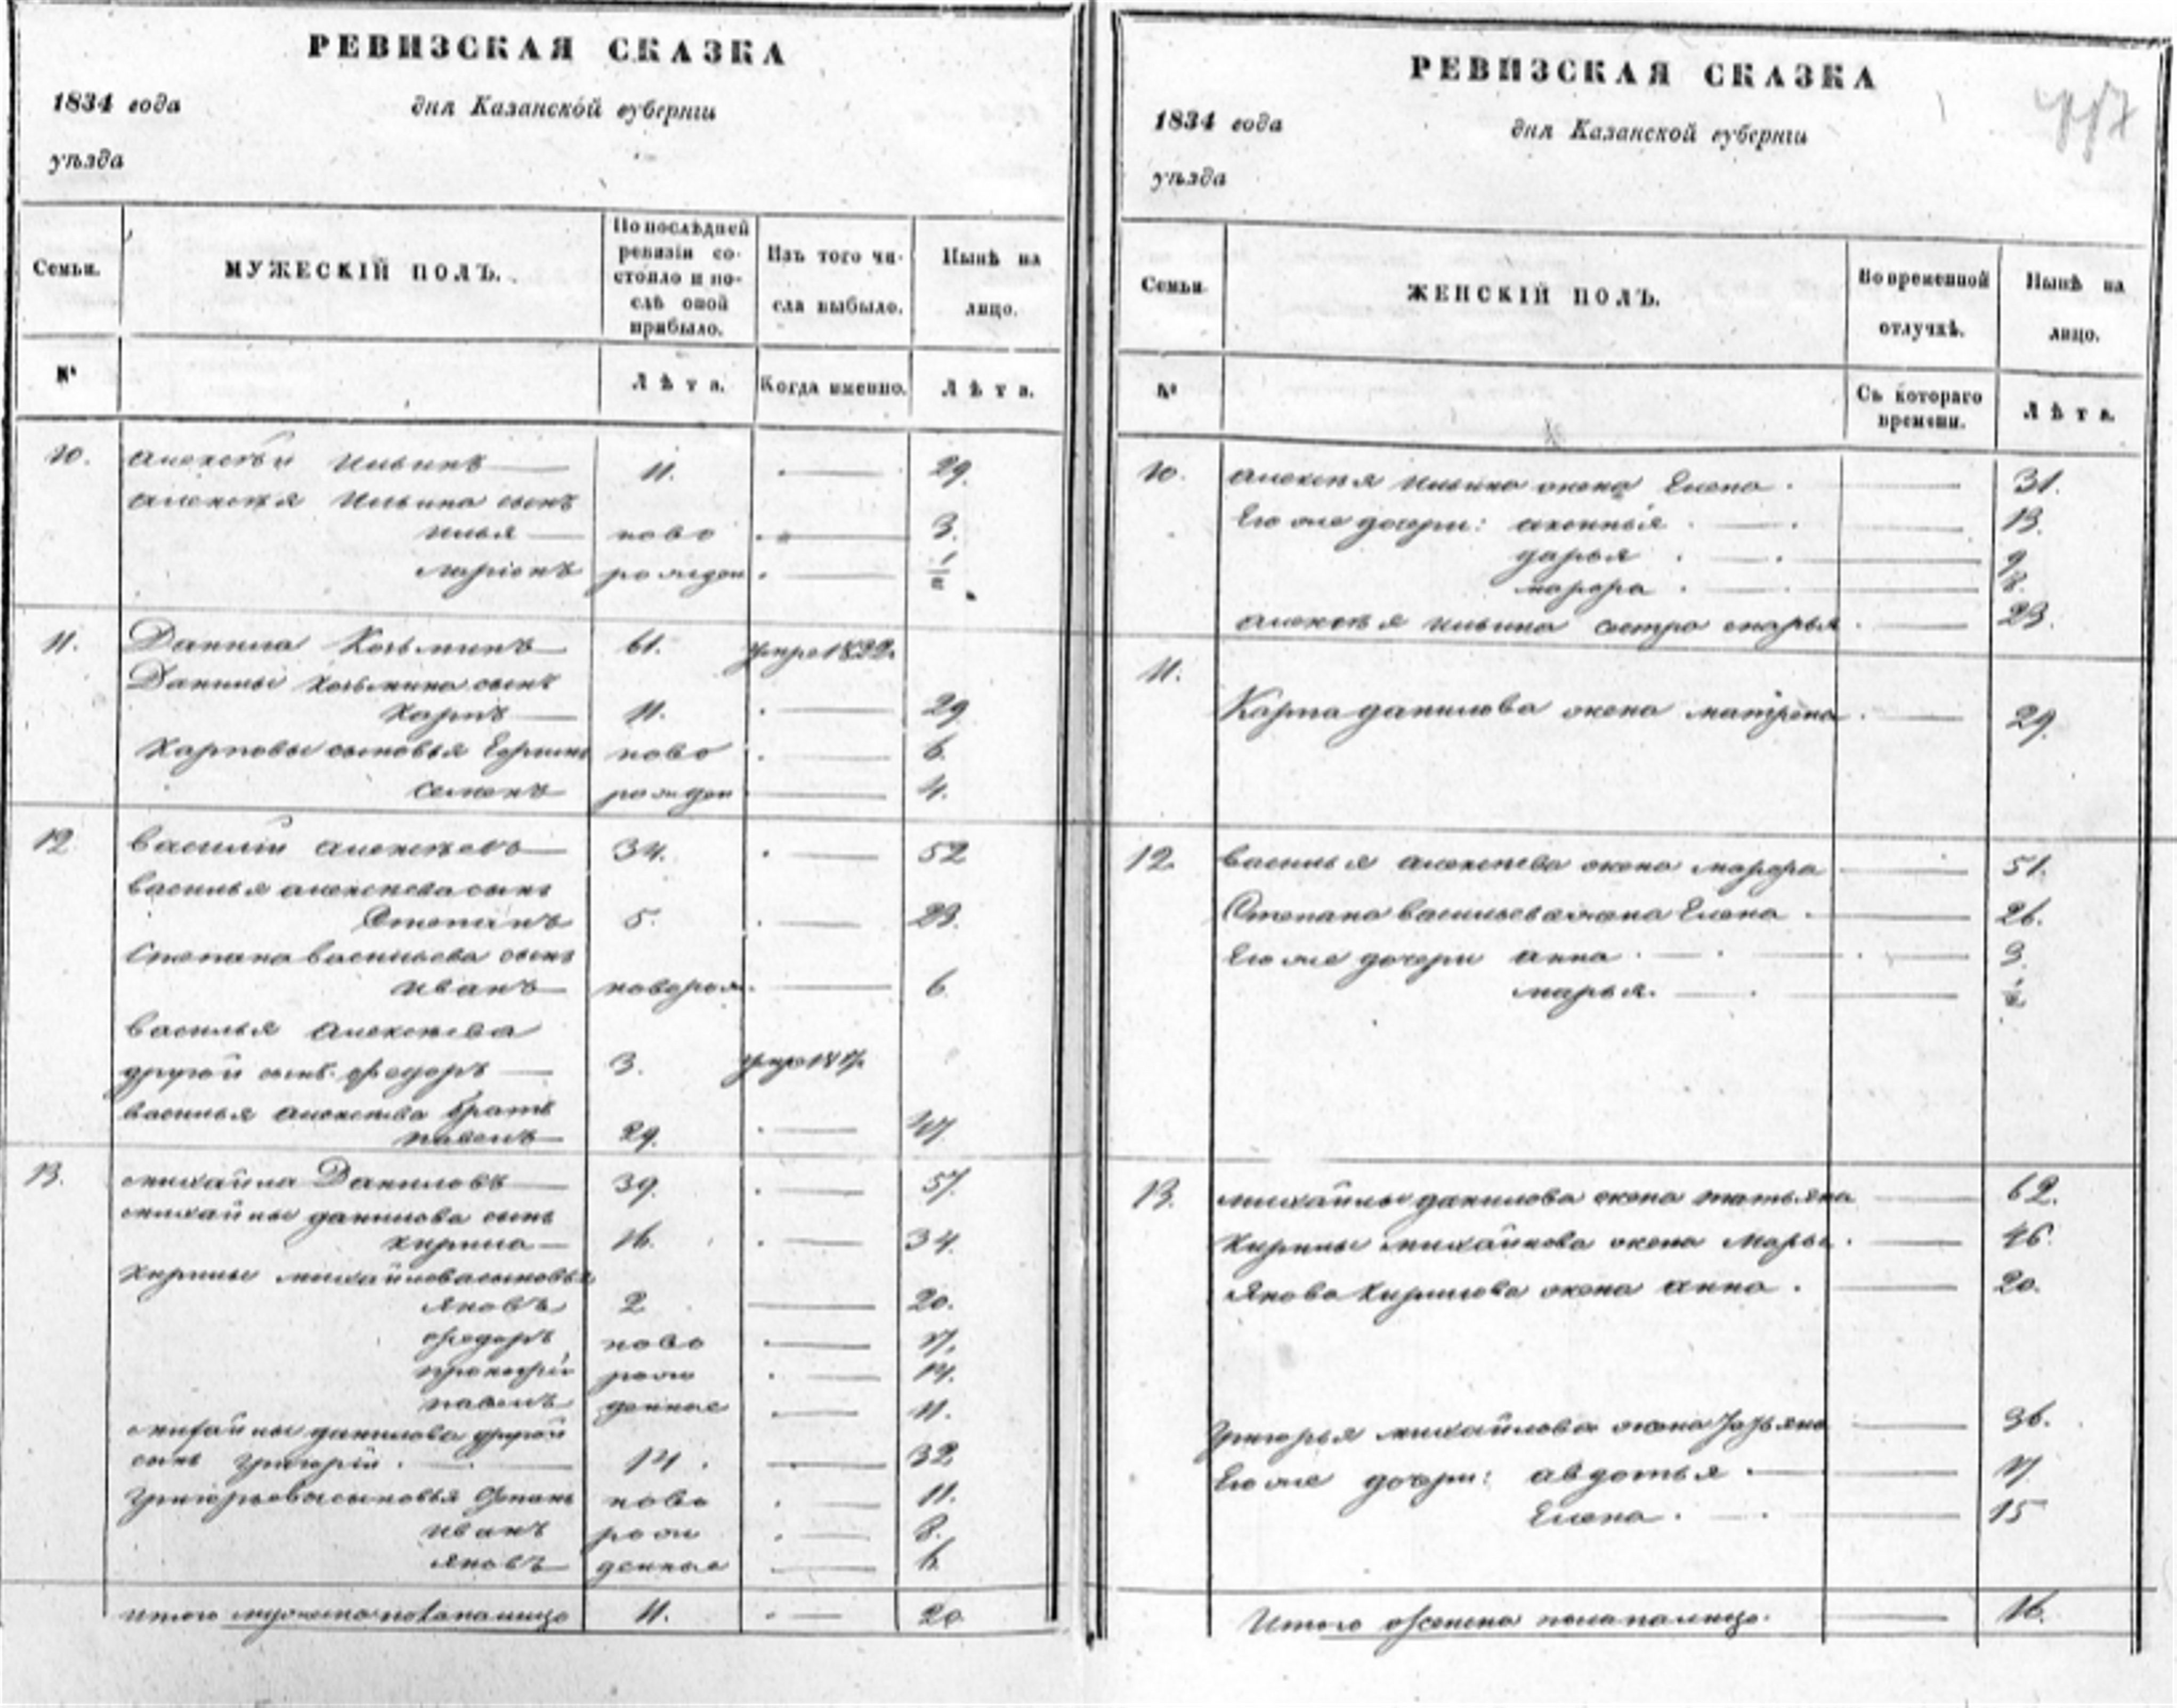 РЕВИЗСКАЯ СКАЗКА
1834 года дня Казанской губерніи
уѣзда
Семьи.
МУЖЕСКІЙ ПОЛЪ.
По послѣдней ревизіи со-
стояло и по-
слѣ оной
прибыло.
Изъ того чи-
сла выбыло.
Нынѣ на
лицо.
№
Лѣта.
Когда именно.
Лѣта.
10. Алексѣй Ильинъ 11. 29.
Алексѣя Ильина сынъ
Илья ново 3.
Ларіонъ рожден
11. Данила Козьминъ 61. умре 1822.
Данилы Козьмина сынъ
Карпъ 11. 29
Карповы сыновья Ефримъ ново 6.
Семенъ рожден 4.
12 Василій Алексѣевъ 34. 52
Василья Алексѣева сынъ
Степанъ 5. 23.
Степана Васильева сынъ
Иванъ новорож. 6
Василья Алексѣева
другой сынъ Федоръ 3. умре
Василья Алексѣева братъ
Павелъ 29. 47
13. Михайла Даниловъ 39. 57.
Михайлы Данилова сынъ
Кирила 16. 34.
Кирилы Михайлова сыновья
Яковъ 2 20.
Федоръ ново 17.
Прокофій рож 14.
Павелъ денные 11.
Михайлы Данилова другой
сынъ Григорій 14. 32
Григорьевы сыновья ново 11.
Иванъ рож 8.
Яковъ денные 6.
Итого мужеска пола на лицо 11. 20
РЕВИЗСКАЯ СКАЗКА
1834 года дня Казанской губерніи
уѣзда
Семьи
ЖЕНСКІЙ ПОЛЪ.
Во временной
отлучкѣ.
Нынѣ на
лицо.
№
Съ котораго
времени.
Лѣта.
10. Алексѣя Ильина жена Елена 31.
Ево же дочери: Аксинья 13.
Дарья 9
Марфа 8.
Алексѣя Ильина сестра Марья 23.
11.
Карпа Данилова жена Матрена 29.
12. Василья Алексѣева жена Марфа 51.
Степана Васильева жена Елена 26.
Ево же дочери Анна 3.
Марья.
13. Михайлы Данилова жена Татьяна 62.
Кирилы Михайлова жена Марья 46.
Якова Кирилова жена Анна 20.
Григорья Михайлова жена Татьяна 36.
Ево же дочери: Авдотья 17
Елена 15
Итого женска пола на лицо. 16.